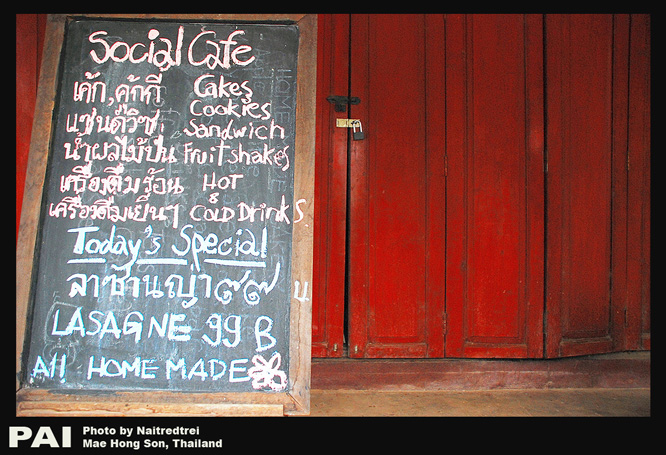 Social Cafe
เค้ก, คุ้กกี้ Cakes Cookies
แซนด์วิช Sandwich
น้ำผลไม้ปั่น Fruit shakes
เครื่องดื่มร้อน HOT
&
เครื่องดื่มเย็นๆ COLD Drinks.
Today's Special
ลาซานญ่า ๙๙ บ.
LASAGNE 99 B
All HOME MADE
PAI
Photo by Naitredtrei
Mae Hong Son, Thailand